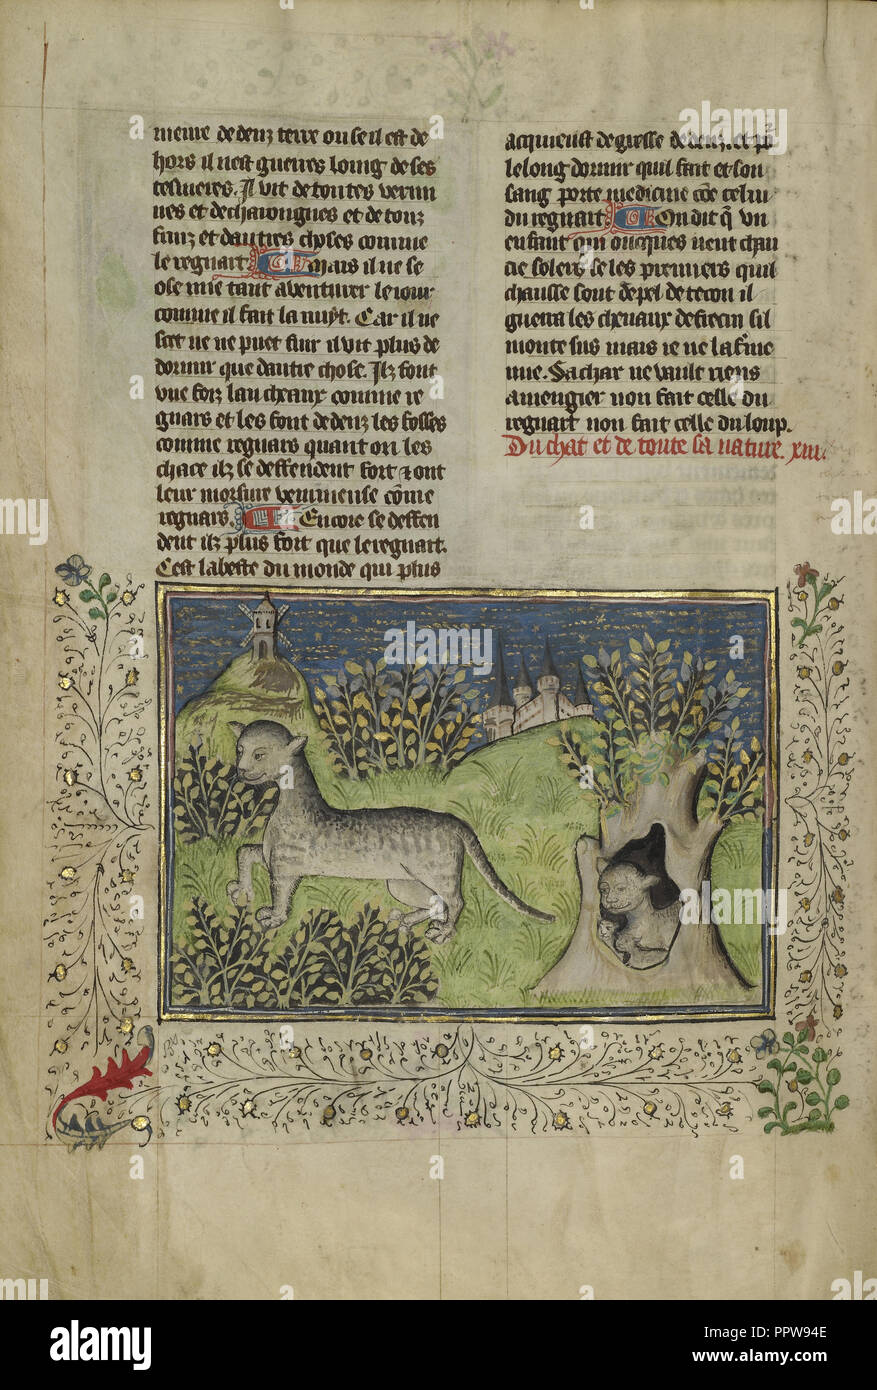 meure dedenz terre ou se il est de
hors il nest guerres loing de ses
tesnieres. Il vit de toutes vermi
nes et de charongnes et de touz
fruiz et dautres choses comme
le regnart. Mais il ne se
ose mie tant aventurer le iour
comme il fait la nuyt. Car il ne
scet ne ne puet fuir il vit plus de
dormir que dautre chose. Ilz font
une foiz lan cheaux comme re
gnars et les font dedenz les fosses
comme regnars quant on les
chace ilz se deffendent fort et ont
leur morsure venimeuse cõme
regnars. Encore se deffen
dent ilz plus fort que le regnart.
Cest la beste du monde qui plus
acquieust de gresse dedenz. et põ
le long dormir quil fait et son
sang porte medicine cõe celui
du regnart. On dit q̃ un
enfant qui oncques neut chau
cie solers se les premiers quil
chausse sont de pel de tecon il
guerra les chevaux de frecin sil
monte sus mais ie ne lafirme
mie. Sa char ne vault riens
a mengier non fait celle du
regnart non fait celle du loup.
Du chat et de toute sa nature. xiii.
a
alamy
alamy
Image ID: PPW94E
www.alamy.com